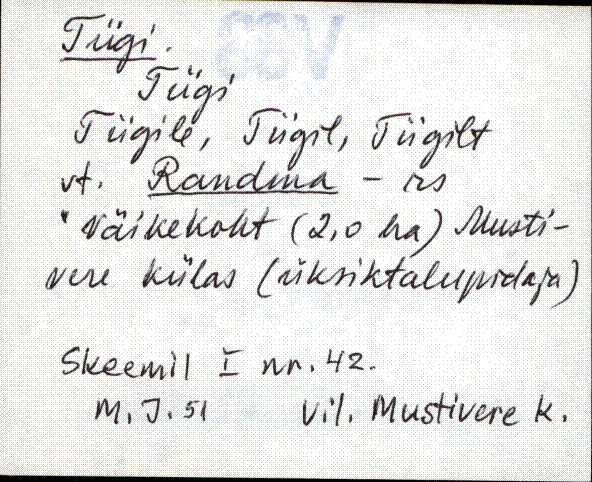 Tiigi.
Tiigi
Tiigile, Tiigil, Tiigilt
vt. Randma - rs
"väikekoht (2,0 ha) Musti-
vere külas (üksiktalupidaja)
Skeemil I nr. 42.
M. J. 51 Vil. Mustivere k.